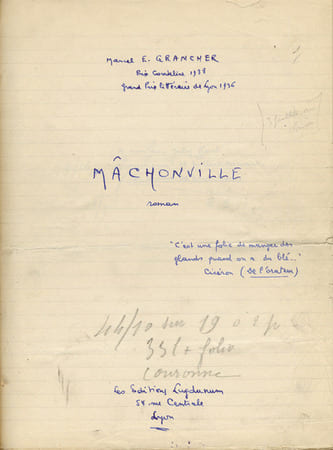 Marcel E. GRANCHER
Prix Courteline 1938
Grand Prix littéraire de Lyon 1936
MÂCHONVILLE
roman
"C'est une folie de manger des
glands quand on a du blé..."
Cicéron (De l'orateur)
44/10 sur 19
33l + folio
couronne
Les Editions Lugdunum
54 rue Centrale
Lyon